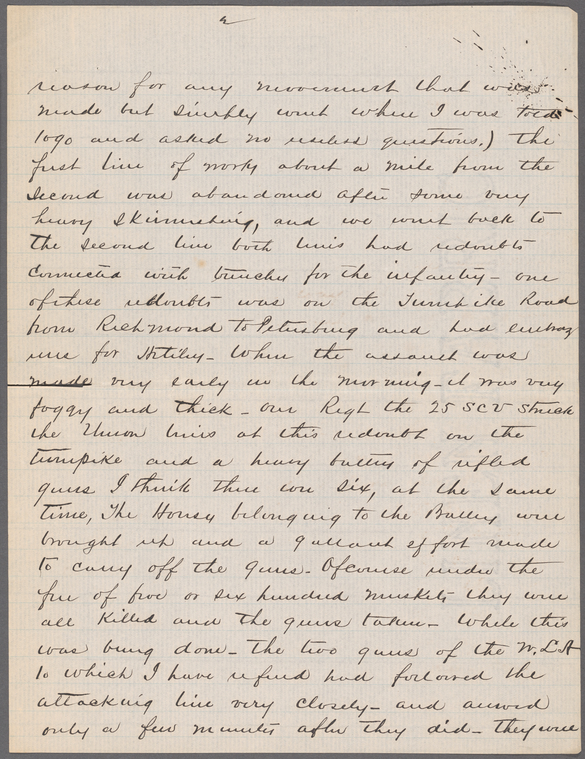 2
reason for any movement that was
made but simply went where I was told
to go and asked no useless questions.) The
first line of works about a mile from the
second was abandoned after some very
heavy skirmishing, and we went back to
the second line both lines had redoubts
connected with trenches for the infantry - one
of these redoubts was on the Turnpike Road
from Richmond to Petersburg and had embraz
ures for Artillery - When the assault was
made very early in the morning - it was very
foggy and thick - our Regt the 25 SCV struck
the Union lines at this redoubt on the
turnpike and a heavy battery of rifled
guns I think there were six, at the same
time, The Horses belonging to the Battery were
brought up and a gallant effort made
to carry off the guns - Of course under the
fire of five or six hundred muskets they were
all killed and the guns taken - While this
was being done - the two guns of the W. L. A
to which I have referred had followed the
attacking line very closely - and arrived
only a few minutes after they did - they were